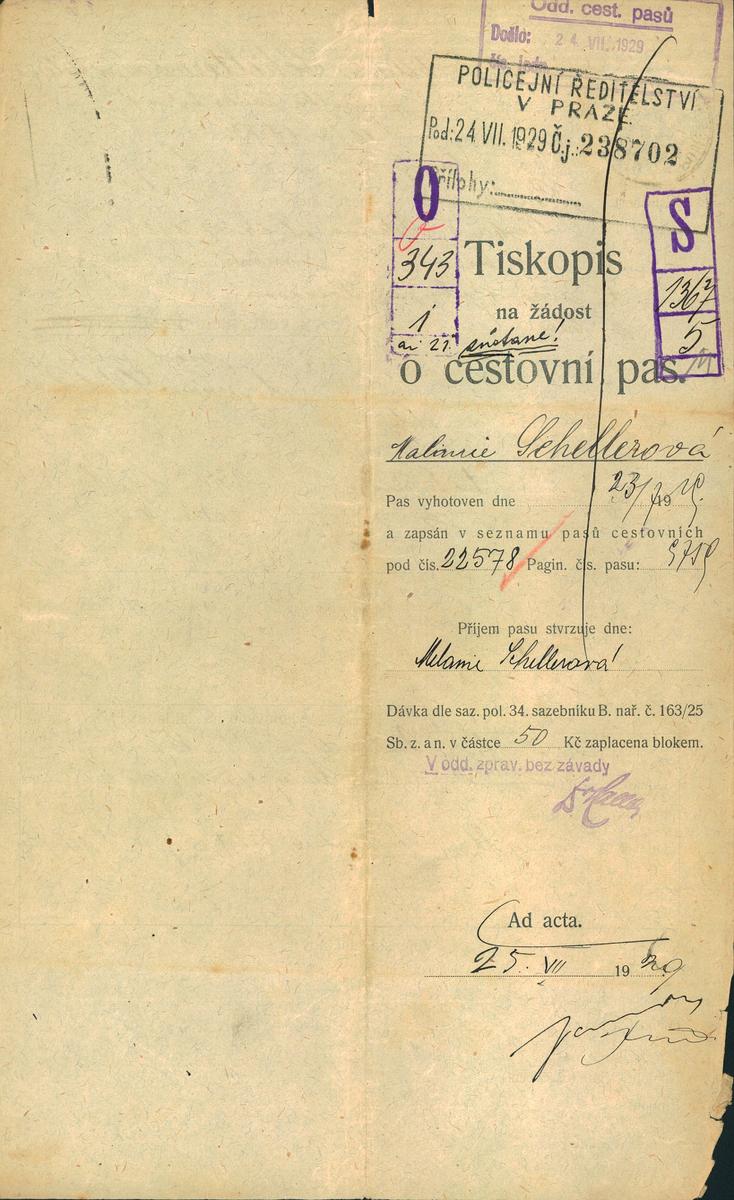 Odd. cest. pasů
Došlo: 24. VII. 1929
POLICEJNÍ ŘEDITELSTVÍ
V PRAZE
Pod: 24 VII. 1929 Č.j.: 238702
Přílohy:
O
343
1
S
5
Tiskopis
na žádost
o cestovní pas.
Malanie Schellerová
Pas vyhotoven dne 23/7 19
a zapsán v seznamu pasů cestovních
pod čís. 22578 Pagin. čís. pasu:
Příjem pasu stvrzuje dne:
Melanie Schellerová
Dávka dle saz. pol. 34. sazebníku B. nař. č. 163/25
Sb. z. a n. v částce 50 Kč zaplacena blokem.
V odd. zprav. bez závady
Ad acta.
25. VII 19 29